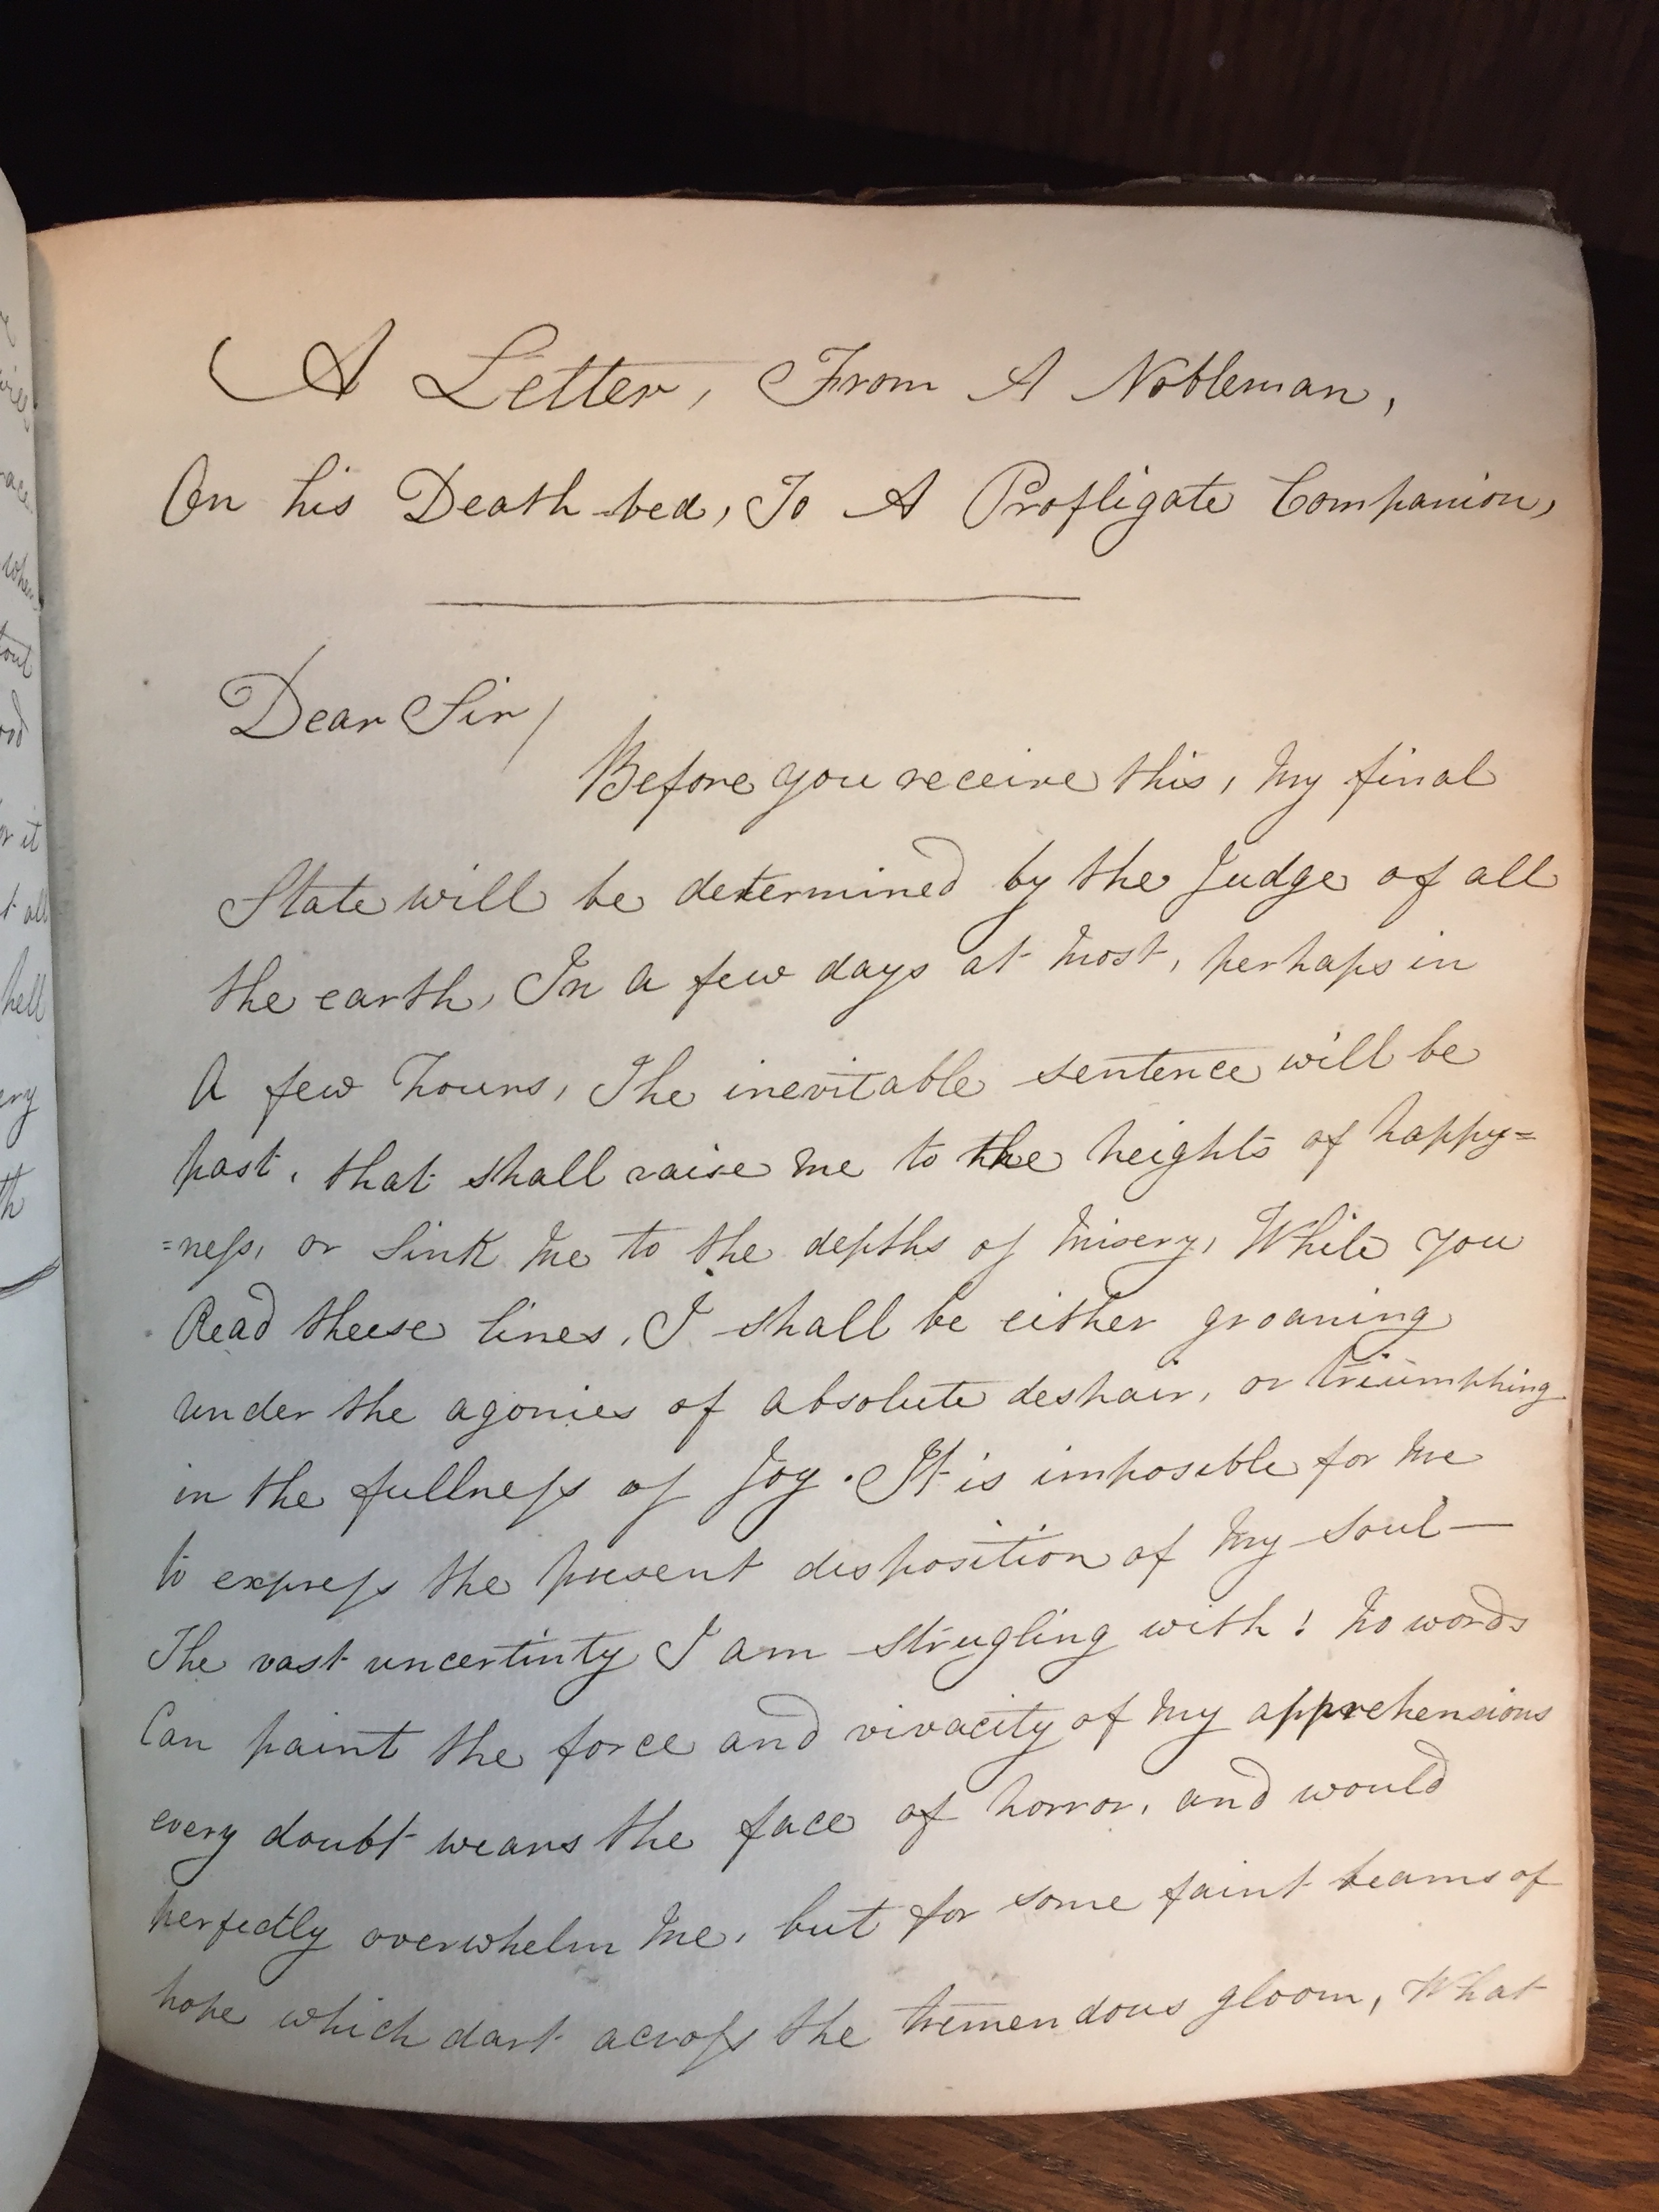 A Letter, From A Nobleman,
On his Death-bed, To A Profligate Companion,
Dear Sir/
Before you receive this, my final
State will be determined by the Judge of all
the earth, In a few days at most, perhaps in
A few hours, The inevitable sentence will be
past, that shall raise me to the heights of happy=
=ness, or sink me to the depths of misery, While you
Read theese lines, I shall be either groaning
under the agonies of absolute despair, or triumphing
in the fullness of Joy. It is imposeble for me
to express the present disposition of my soul—
The vast uncertinty I am strugling with! no words
Can paint the force and vivacity of my apprehensions
every doubt wears the face of horror, and would
perfectly overwhelm me, but for some faint beams of
hope which dart across the tremendous gloom, What
when
or it
t all
hell
ery
th